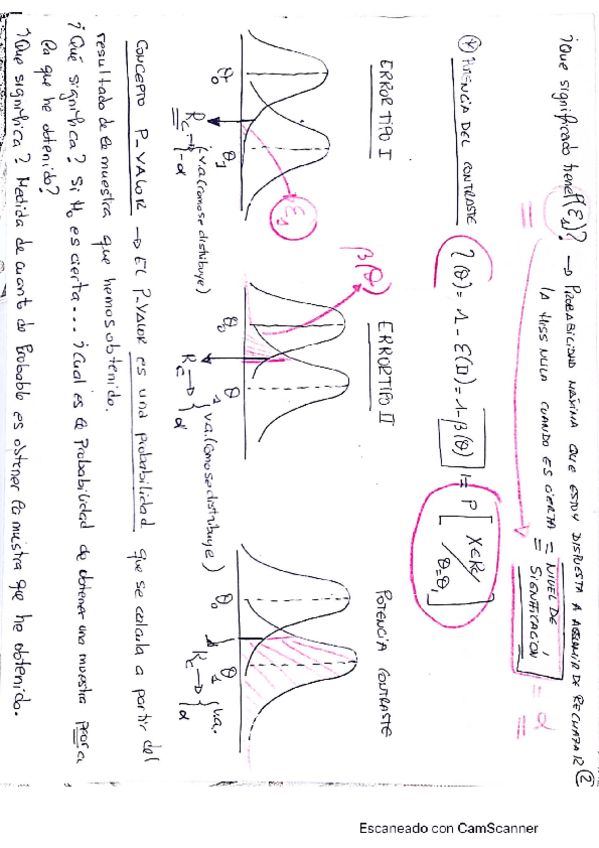 ¿Que significado tiene P(E₁)? → PROBABILIDAD MÁXIMA QUE ESTOY DISPUESTA A ASUMIR DE RECHAZAR ②
LA HISS NULA CUANDO ES CIERTA = NIVEL DE SIGNIFICACIÓN = α
* POTENCIA DEL CONTRASTE
η(θ) = 1 - E(II) = 1 - β(θ) = P[X∈Rc / θ=θ₁]
ERROR TIPO I
ERROR TIPO II
POTENCIA CONTRASTE
θ₀ θ₁
E₁
Rc → { v.a. (como se distribuye)
α
β(θ)
θ₀ θ₁
Rc → { v.a. (como se distribuye)
α
θ₀ θ₁
Rc → { v.a.
α
CONCEPTO P_VALOR → EL P_VALOR es una probabilidad que se calcula a partir del
resultado de la muestra que hemos obtenido.
¿Qué significa? Si H₀ es cierta... ¿Cual es la Probabilidad de obtener una muestra peor a
la que he obtenido?
¿Que significa? Medida de cuanto de Probable es obtener la muestra que he obtenido.
Escaneado con CamScanner